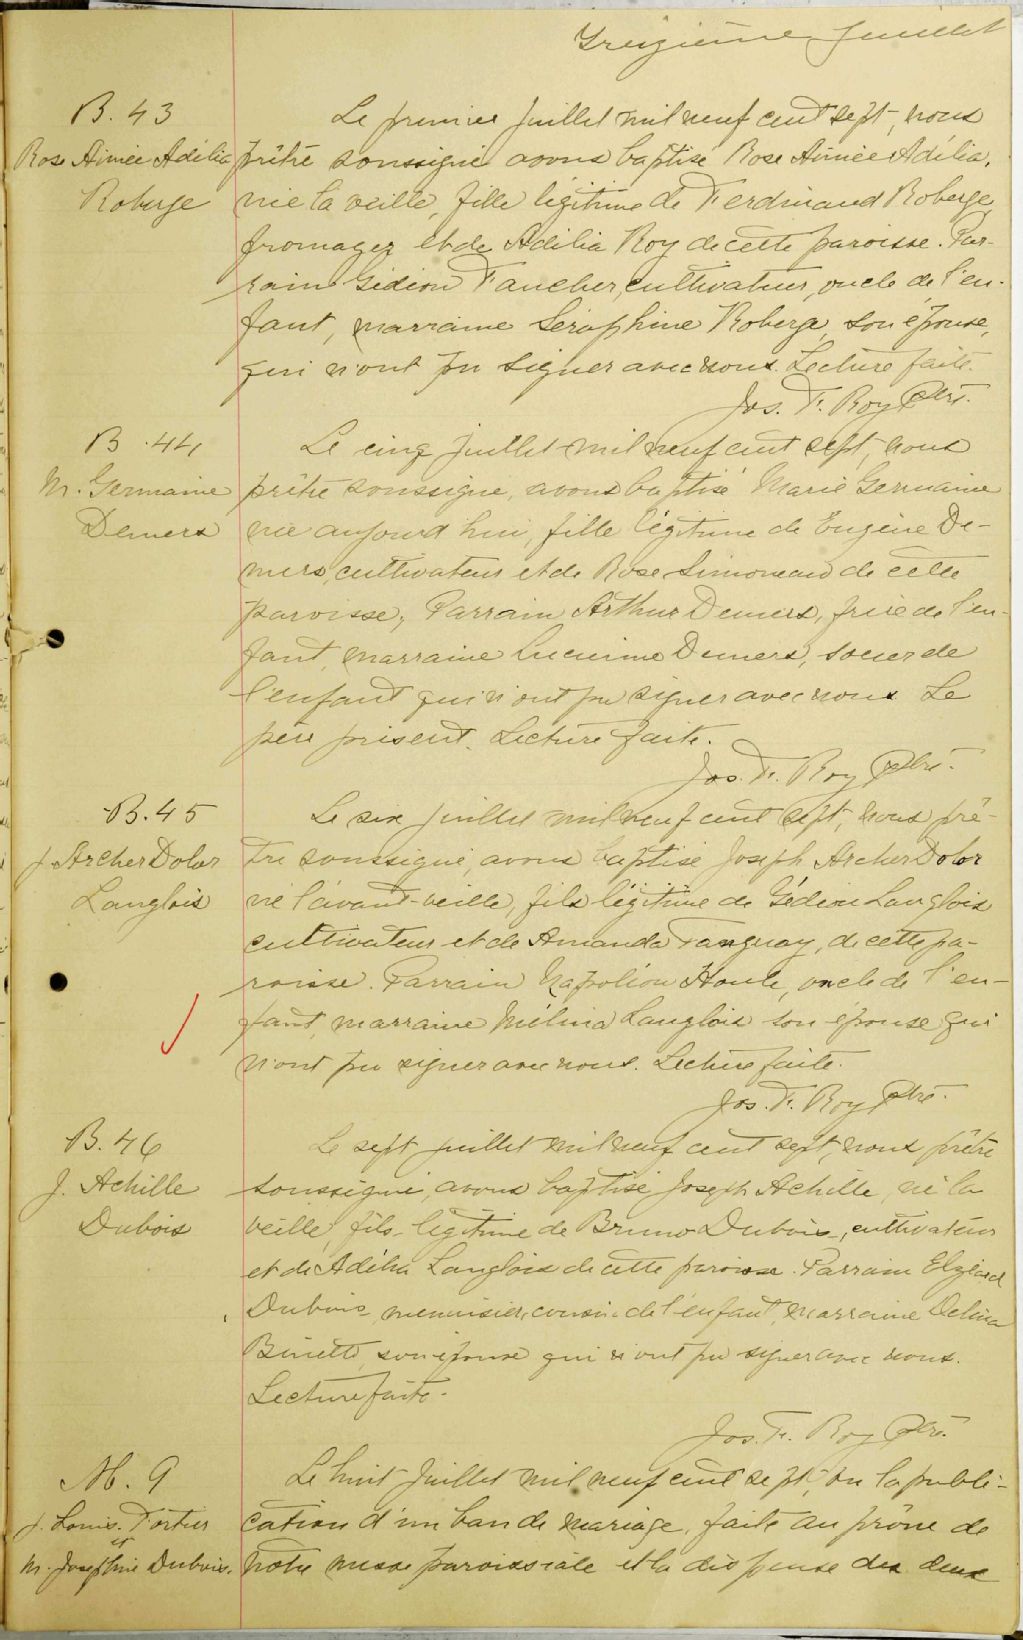 Treizième feuillet
B. 43
Rose Aimée Adélia
Roberge
Le premier juillet mil neuf cent sept, nous
prêtre soussigné avons baptisé Rose Aimée Adélia,
née la veille, fille légitime de Ferdinand Roberge
fromager et de Adélia Roy de cette paroisse. Par-
rain Gédéon Faucher, cultivateur, oncle de l'en-
fant, marraine Séraphine Roberge, son épouse,
qui n'ont pu signer avec nous. Lecture faite.
Jos. F. Roy Ptre.
B. 44
M. Germaine
Demers
Le cinq juillet mil neuf cent sept, nous
prêtre soussigné, avons baptisé Marie Germaine
née aujourd'hui, fille légitime de Eugène De-
mers, cultivateur et de Rose Simoneau de cette
paroisse; Parrain Arthur Demers, frère de l'en-
fant, marraine Demers, soeur de
l'enfant qui n'ont pu signer avec nous Le
père présent. Lecture faite.
Jos. F. Roy Ptre.
B. 45
J. Archer Dolor
Langlois
Le six juillet mil neuf cent sept, nous prê-
tre soussigné, avons baptisé Joseph Archer Dolor
né l'avant-veille, fils légitime de Gédéon Langlois
cultivateur et de Amanda Tanguay, de cette pa-
roisse. Parrain Napoléon Houle, oncle de l'en-
fant, marraine Mélina Langlois son épouse qui
n'ont pu signer avec nous. Lecture faite.
Jos. F. Roy Ptre.
B. 46
J. Achille
Dubois
Le sept juillet mil neuf cent sept, nous prêtre
soussigné, avons baptisé Joseph Achille, né la
veille, fils légitime de Bruno Dubois, cultivateur
et de Adélia Langlois de cette paroisse. Parrain Elzéard
Dubois, menuisier, cousin de l'enfant, marraine Delina
Binette, son épouse qui n'ont pu signer avec nous.
Lecture faite.
Jos. F. Roy Ptre.
M. 9
J. Louis. Fortier
et
M. Josephine Dubois.
Le huit juillet mil neuf cent sept, vu la publi-
cation d'un ban de mariage, faite au prône de
notre messe paroissiale et la dispense des deux